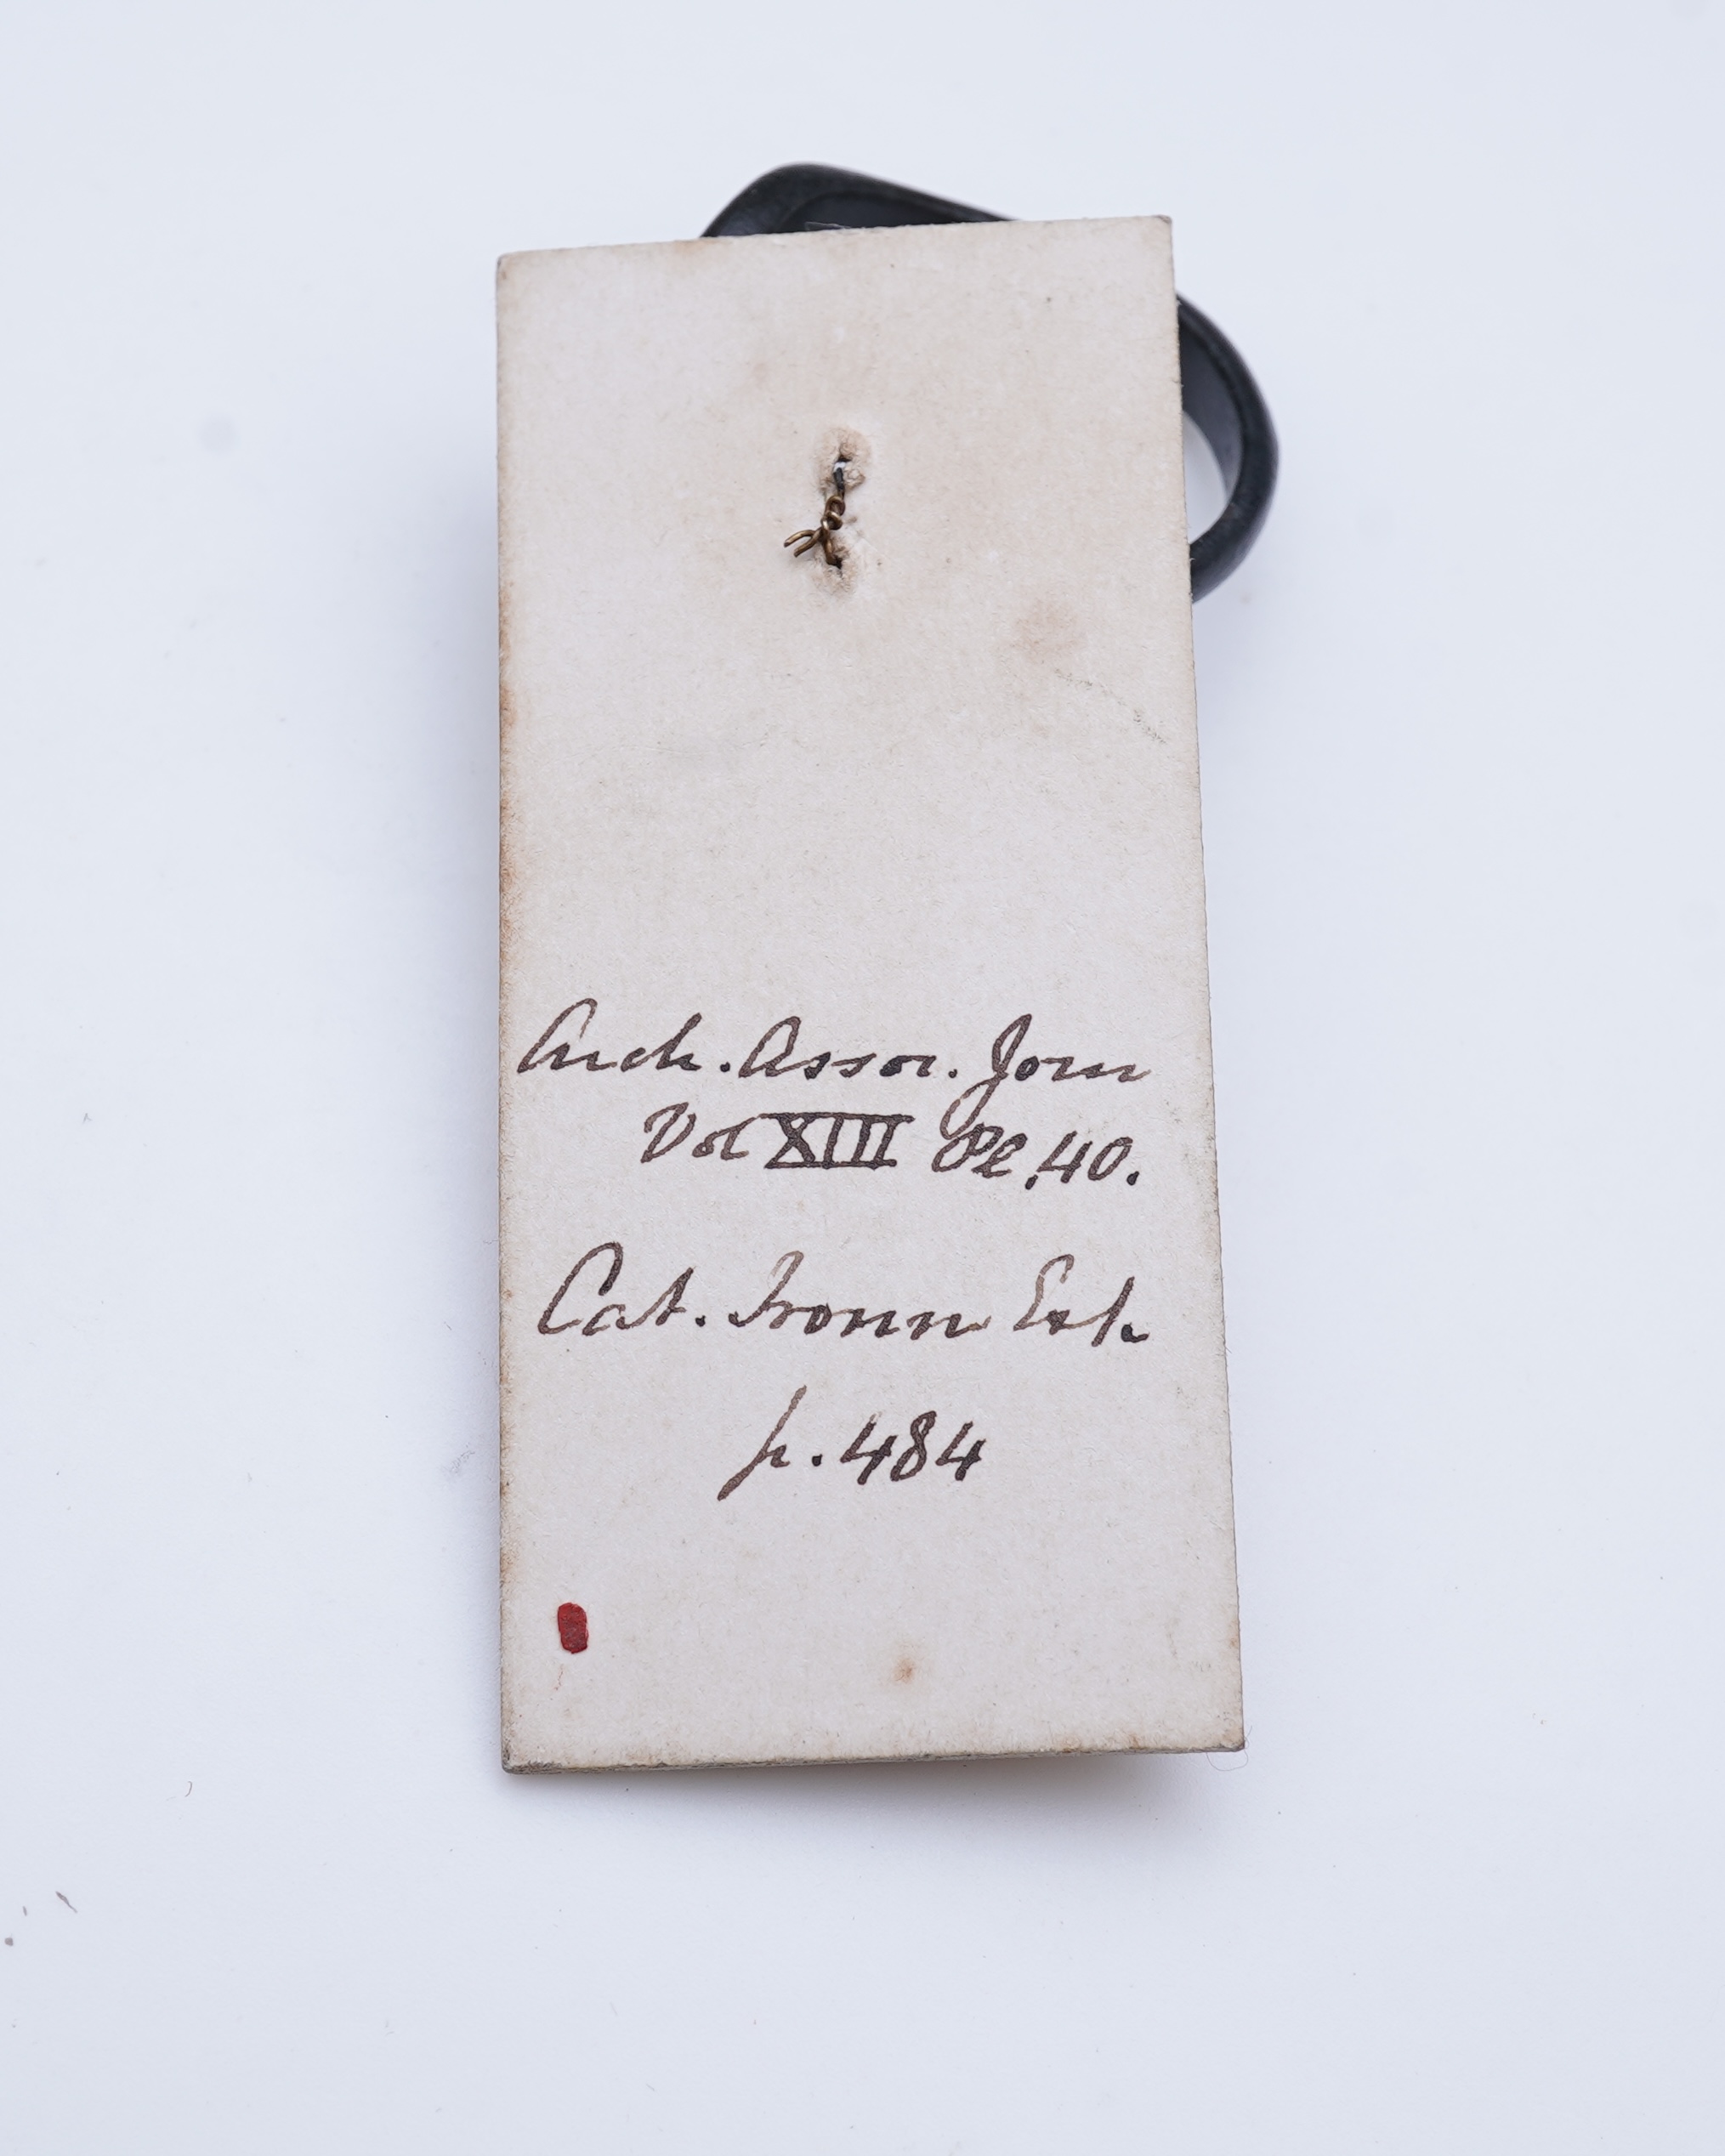 Arch. Assoc. Journ
Vol XIII Pl. 40.
Cat. Ironm Exh.
p. 484